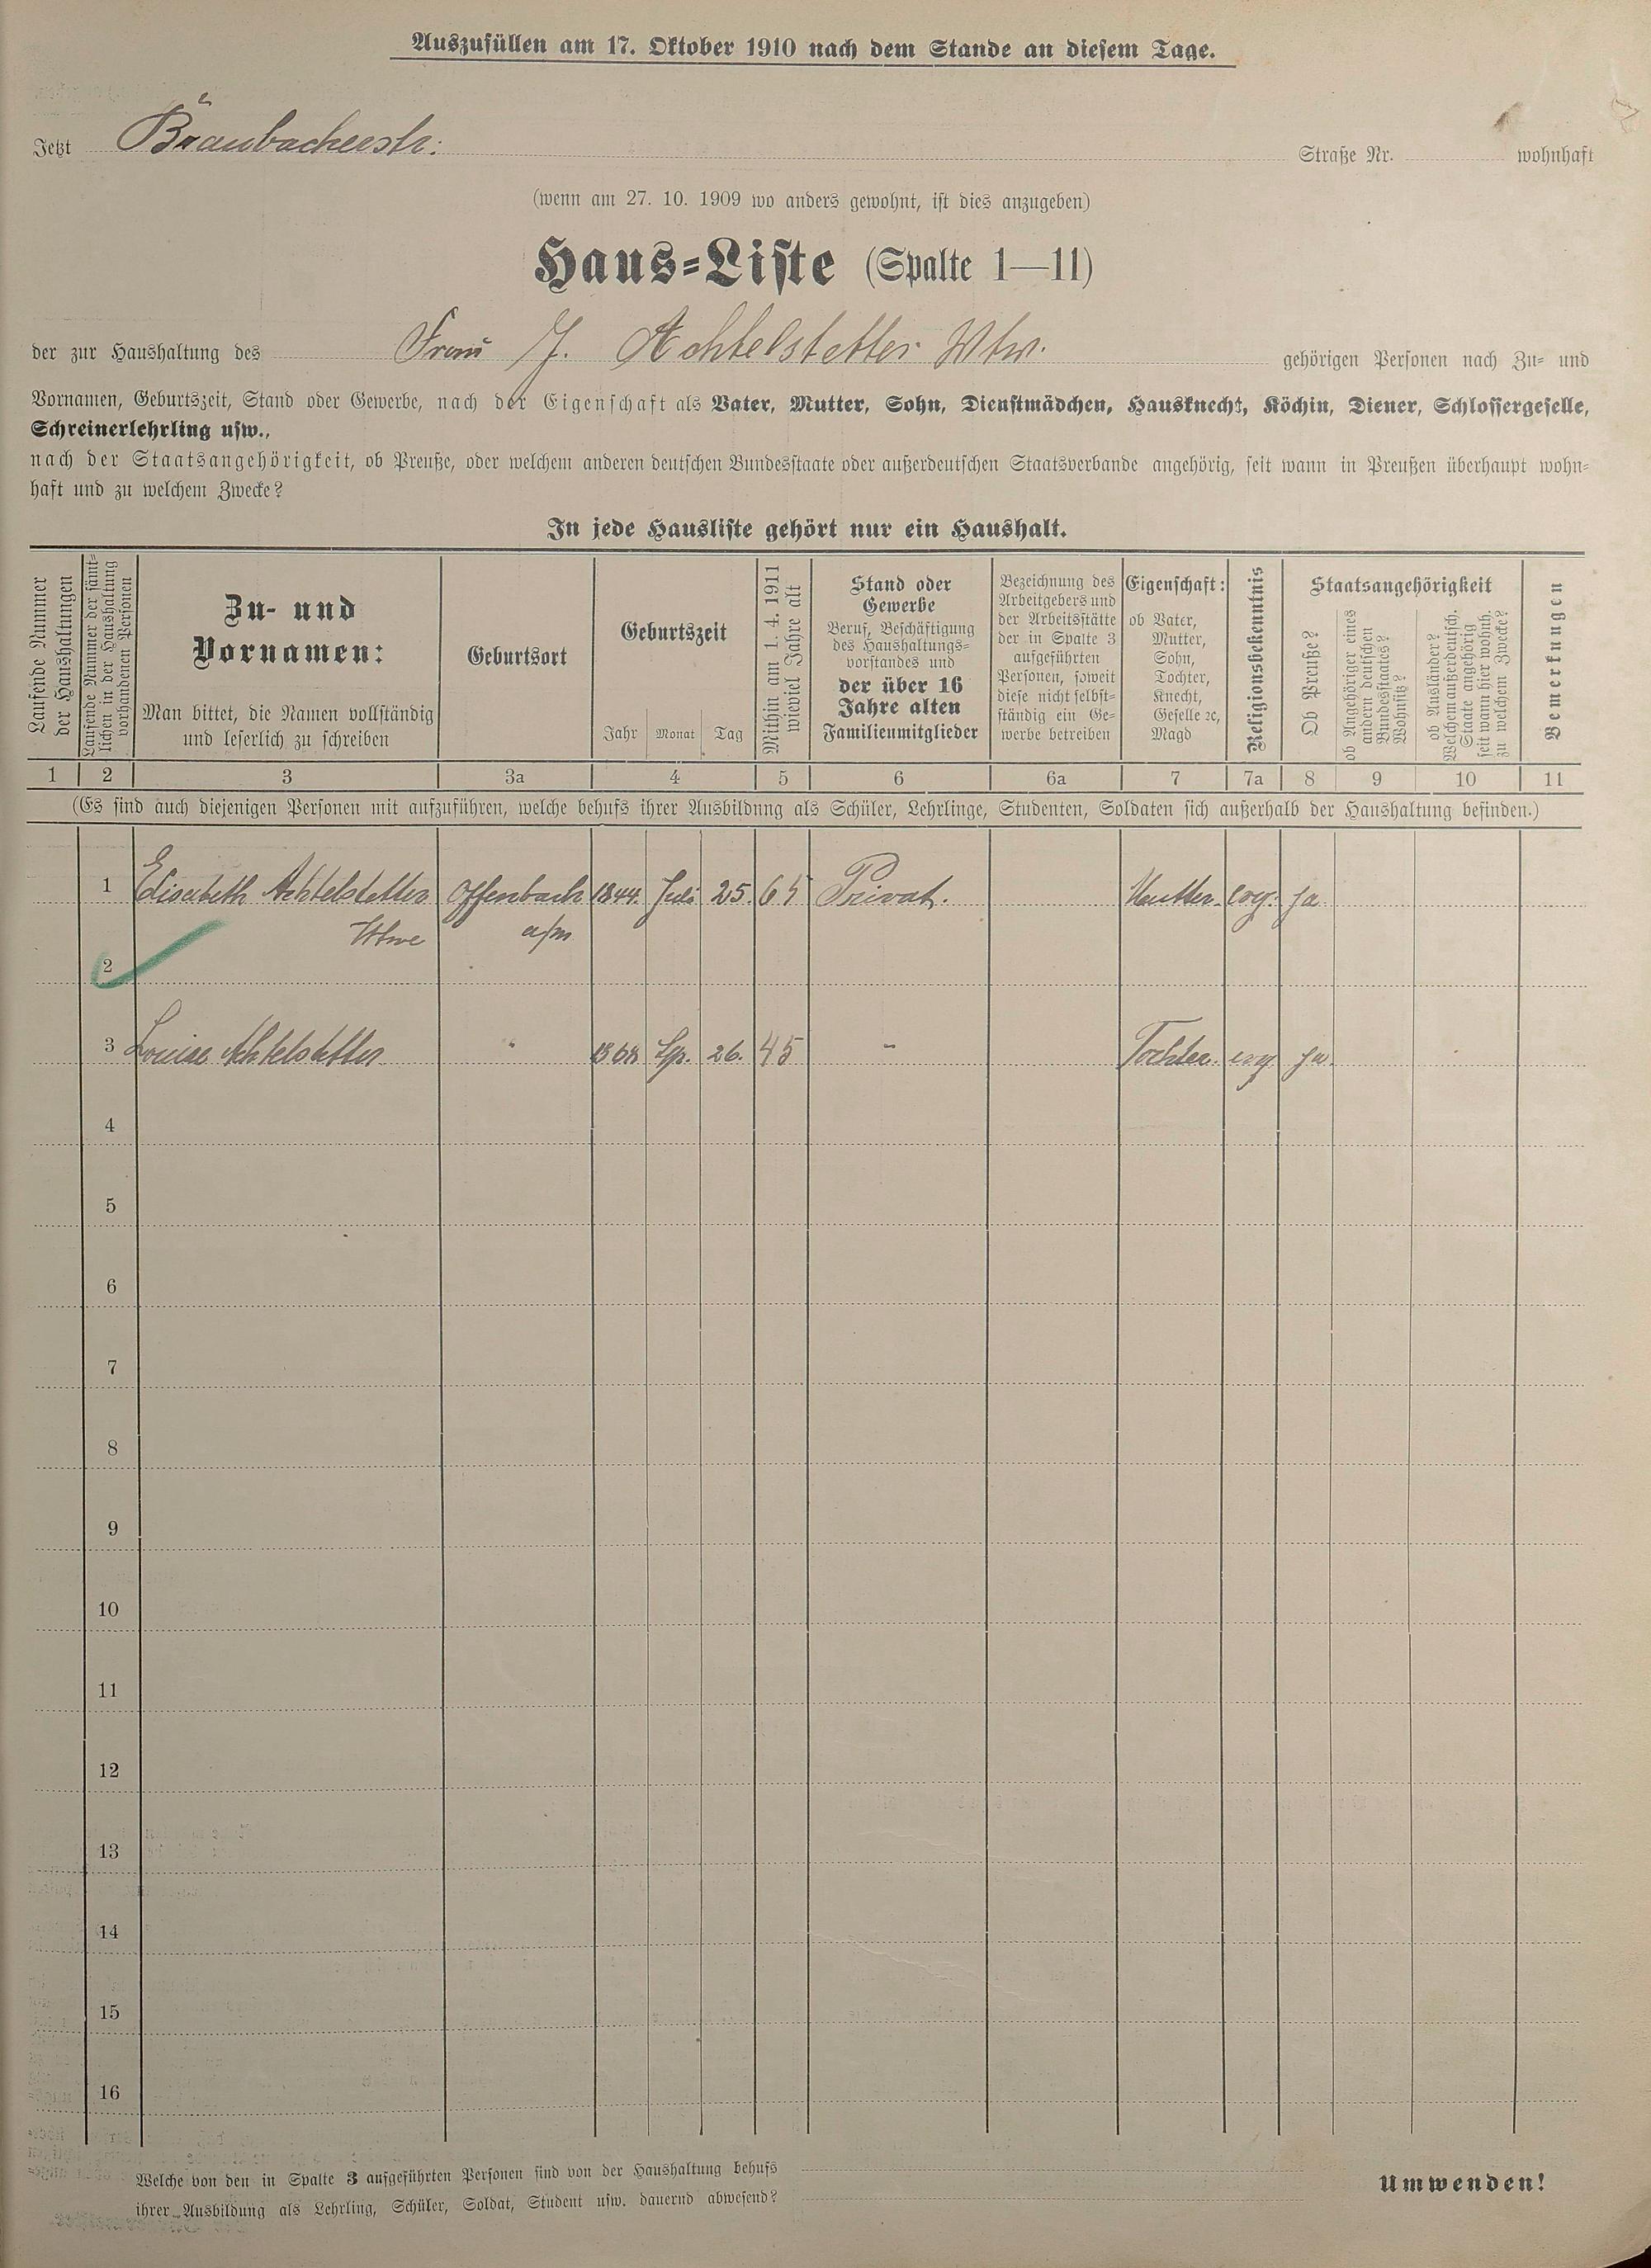 Auszufüllen am 17. Oktober 1910 nach dem Stande an diesem Tage.
Jetzt Braubacherstr: Straße Nr. wohnhaft
(wenn am 27. 10. 1909 wo anders gewohnt, ist dies anzugeben)
Haus-Liste (Spalte 1—11)
der zur Haushaltung des Frau J. Achtelstetter Wtw. gehörigen Personen nach Zu- und
Vornamen, Geburtszeit, Stand oder Gewerbe, nach der Eigenschaft als Vater, Mutter, Sohn, Dienstmädchen, Hausknecht, Köchin, Diener, Schlossergeselle,
Schreinerlehrling usw.,
nach der Staatsangehörigkeit, ob Preuße, oder welchem anderen deutschen Bundesstaate oder außerdeutschen Staatsverbande angehörig, seit wann in Preußen überhaupt wohn-
haft und zu welchem Zwecke?
In jede Hausliste gehört nur ein Haushalt.
Laufende Nummer
der Haushaltungen
Laufende Nummer der sämt-
lichen in der Haushaltung
vorhandenen Personen
Zu- und
Vornamen:
Man bittet, die Namen vollständig
und leserlich zu schreiben
Geburtsort
Geburtszeit
Jahr Monat Tag
Mithin am 1. 4. 1911
wieviel Jahre alt
Stand oder
Gewerbe
Beruf, Beschäftigung
des Haushaltungs-
vorstandes und
der über 16
Jahre alten
Familienmitglieder
Bezeichnung des
Arbeitgebers und
der Arbeitsstätte
der in Spalte 3
aufgeführten
Personen, soweit
diese nicht selbst-
ständig ein Ge-
werbe betreiben
Eigenschaft:
ob Vater,
Mutter,
Sohn,
Tochter,
Knecht,
Geselle ꝛc,
Magd
Religionsbekenntnis
Staatsangehörigkeit
Ob Preuße?
ob Angehöriger eines
andern deutschen
Bundesstaates?
Wohnsitz?
ob Ausländer?
Welchem außerdeutsch.
Staate angehörig
seit wann hier wohnh.
zu welchem Zwecke?
Bemerkungen
1 2 3 3a 4 5 6 6a 7 7a 8 9 10 11
(Es sind auch diejenigen Personen mit aufzuführen, welche behufs ihrer Ausbildung als Schüler, Lehrlinge, Studenten, Soldaten sich außerhalb der Haushaltung befinden.)
1 Elisabeth Achtelstetter Offenbach 1844. Juli 25. 65 Privat. Mutter. evg. ja
Wtwe a/m
2
3 Louise Achtelstetter " 1868 Sp. 26. 45 " Tochter. evg ja.
4
5
6
7
8
9
10
11
12
13
14
15
16
Welche von den in Spalte 3 aufgeführten Personen sind von der Haushaltung behufs
ihrer Ausbildung als Lehrling, Schüler, Soldat, Student usw. dauernd abwesend?
Umwenden!